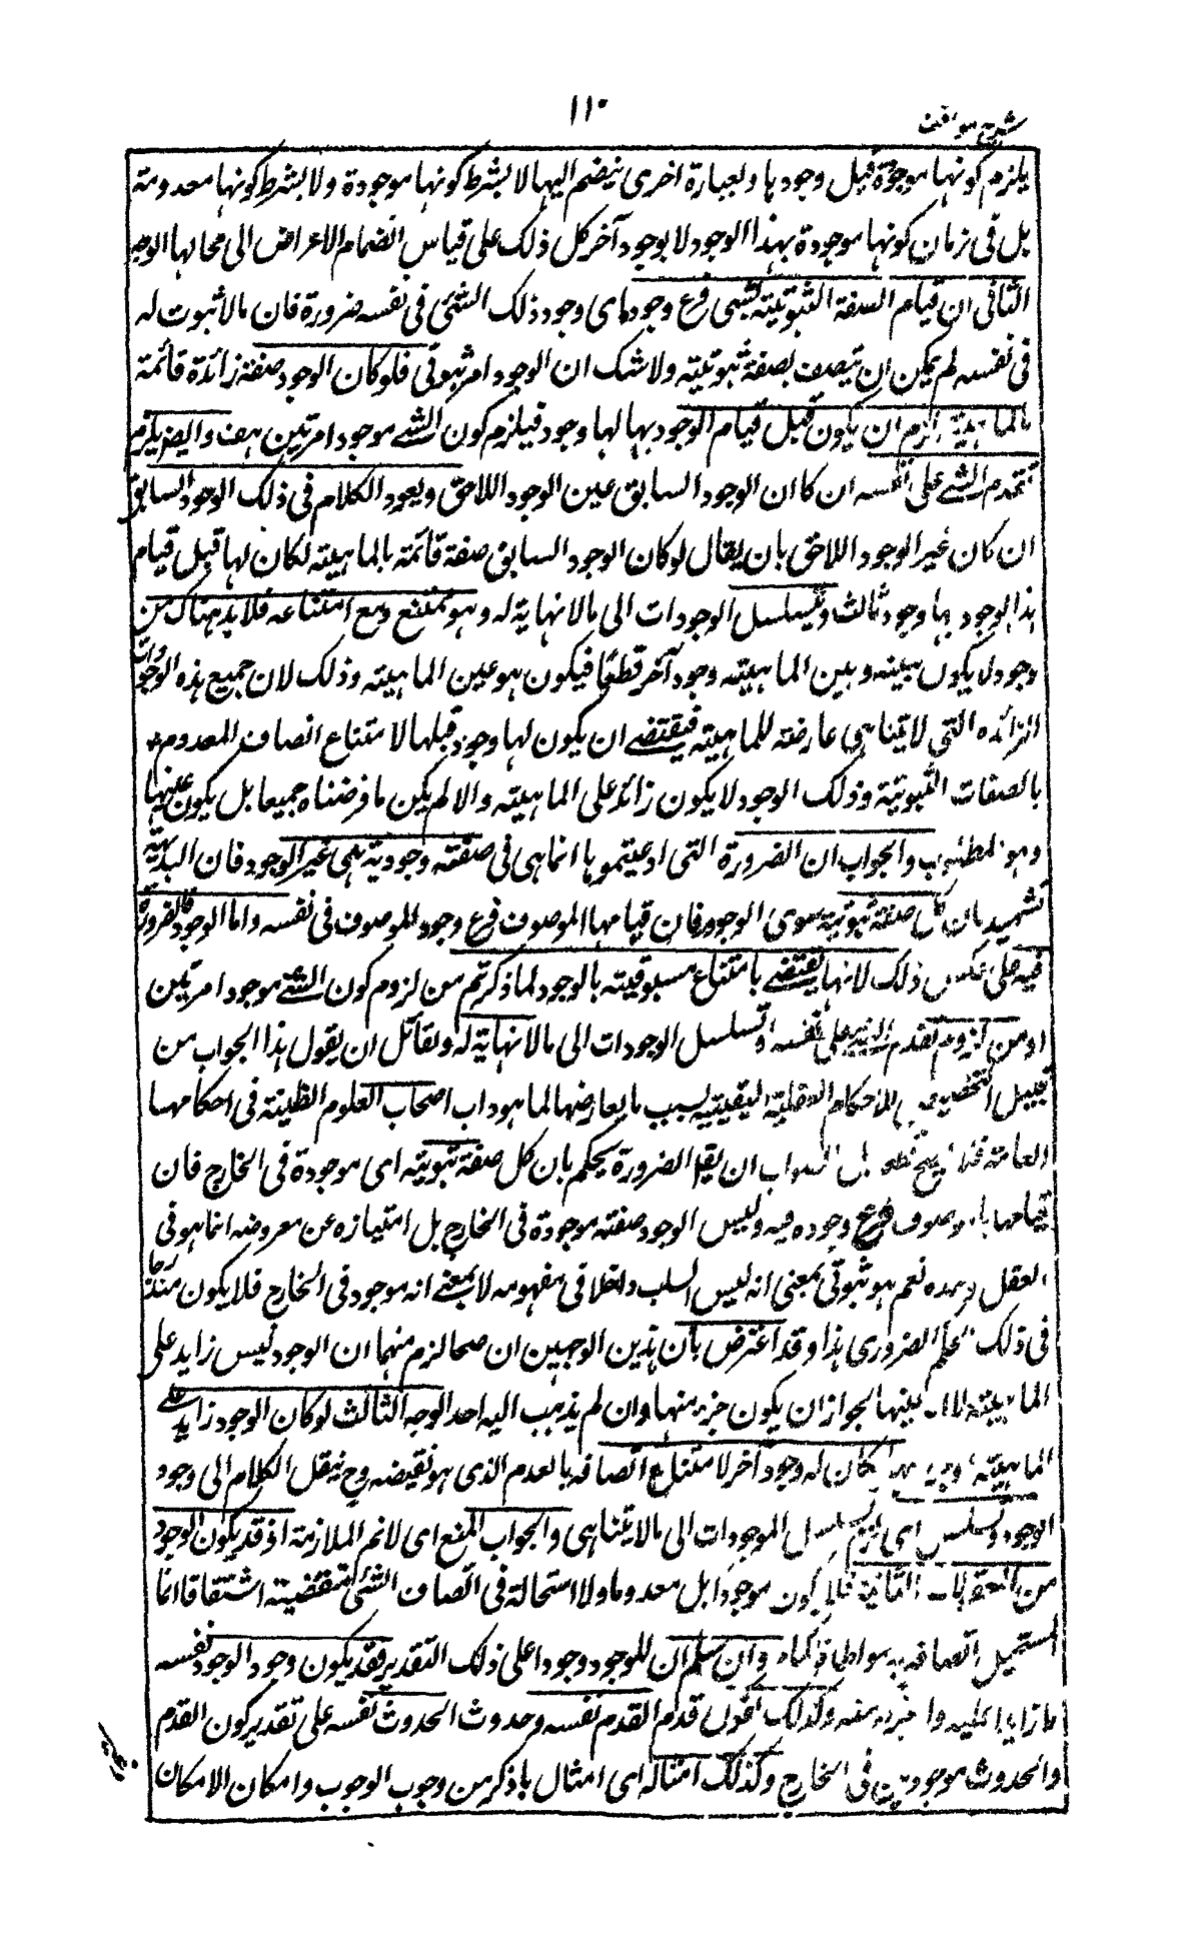 ١١٠
شرح مواقف
يلزم كونها موجودة قبل وجودها وبعبارة اخرى ينضم اليها لا بشرط كونها موجودة ولا بشرط كونها معدومة
بل فى زمان كونها موجودة بهذا الوجود لا بوجود آخر كل ذلك على قياس انضمام الاعراض الى محالها الوجه
الثانى ان قيام الصفة الثبوتية بشئ فرع وجوده اى وجود ذلك الشئ فى نفسه ضرورة فان مالا ثبوت له
فى نفسه لم يمكن ان يتصف بصفة ثبوتية ولا شك ان الوجود امر ثبوتى فلو كان الوجود صفة زائدة قائمة
بالماهية لزم ان يكون قبل قيام الوجود بها لها وجود فيلزم كون الشئ موجودا مرتين هف وايضا يلزم
تقدم الشئ على نفسه ان كا ان الوجود السابق عين الوجود اللاحق ويعود الكلام فى ذلك الوجود السابق
ان كان غير الوجود اللاحق بان يقال لو كان الوجود السابق صفة قائمة بالماهية لكان لها قبل قيام
هذا الوجود بها وجود ثالث ويتسلسل الوجودات الى مالا نهاية له وهو ممتنع ومع امتناعه فلا بد هناك من
وجود لا يكون بينه وبين الماهية وجود آخر قطعا فيكون هو عين الماهية وذلك لان جميع هذه الوجودات
الزائده التى لا يتناهى عارضة للماهية فيقتضى ان يكون لها وجود قبلها لا متناع اتصاف المعدوم
بالصفات الثبوتية وذلك الوجود لا يكون زائدا على الماهية والا لم يكن ما فرضناه جميعا بل يكون عينها
وهو المطلوب والجواب ان الضرورة التى ادعيتموها انما هى فى صفة وجودية هى غير الوجود فان البديهة
تشهد بان كل صفة ثبوتية سوى الوجود فان قيامها بالموصوف فرع وجود الموصوف فى نفسه واما الوجود فالضرورة
فيه على عكس ذلك لانها تقتضى بامتناع مسبوقيته بالوجود لما ذكرتم من لزوم كون الشئ موجودا مرتين
او من لزوم تقدم الشئ على نفسه او تسلسل الوجودات الى مالا نهاية له ولقائل ان يقول هذا الجواب من
قبيل التخصيص للاحكام العقلية اليقينية بسبب ما يعارضها لما هو داب اصحاب العلوم الظنية فى احكامها
العامة فلا يصح قطعا بل الصواب ان يقال الضرورة يحكم بان كل صفة ثبوتية اى موجودة فى الخارج فان
قيامها بالموصوف فرع وجوده فيه وليس الوجود صفة موجودة فى الخارج بل امتيازه عن معروضه انما هو فى
العقل وحده نعم هو ثبوتى بمعنى انه ليس السلب داخلا فى مفهومه لا بمعنى انه موجود فى الخارج فلا يكون مندرجا
فى ذلك الحكم الضرورى هذا وقد اعترض بان هذين الوجهين ان صحا لزم منهما ان الوجود ليس زايد على
الماهية لا انه عينها لجواز ان يكون جزء منها وان لم يذهب اليه احد الوجه الثالث لو كان الوجود زايد على
الماهية لكان له وجود آخر لامتناع اتصافه بالعدم الذى هو نقيضه وح ينقل الكلام الى وجود
الوجود وتسلسل اى لزم تسلسل الموجودات الى مالا يتناهى والجواب المنع اى لانم الملازمة اذ قد يكون الوجود
من المعقولات الثانية فلا يكون موجودا بل معدوما ولا استحالة فى اتصاف الشئ بنقيضه اشتقاقا انما
المستحيل اتصافه به مواطاة وان سلم ان للوجود وجودا على ذلك التقدير فقد يكون وجود الوجود نفسه
لا زايدا عليه وكذلك نقول قدم القدم نفسه وحدوث الحدوث نفسه على تقدير كون القدم
والحدوث موجودين فى الخارج وكذلك امثاله اى امثال ما ذكر من وجوب الوجوب وامكان الامكان